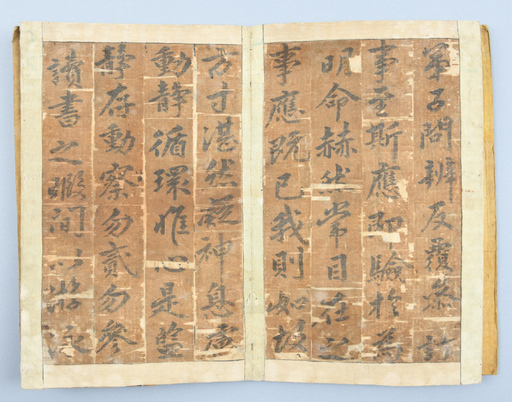 弟子問辨反覆參訂
事至斯應則驗於爲
明命赫然常目在之
事應既已我則如故
方寸湛然凝神息慮
動靜循環惟心是監
靜存動察勿貳勿參
讀書之暇間以游泳